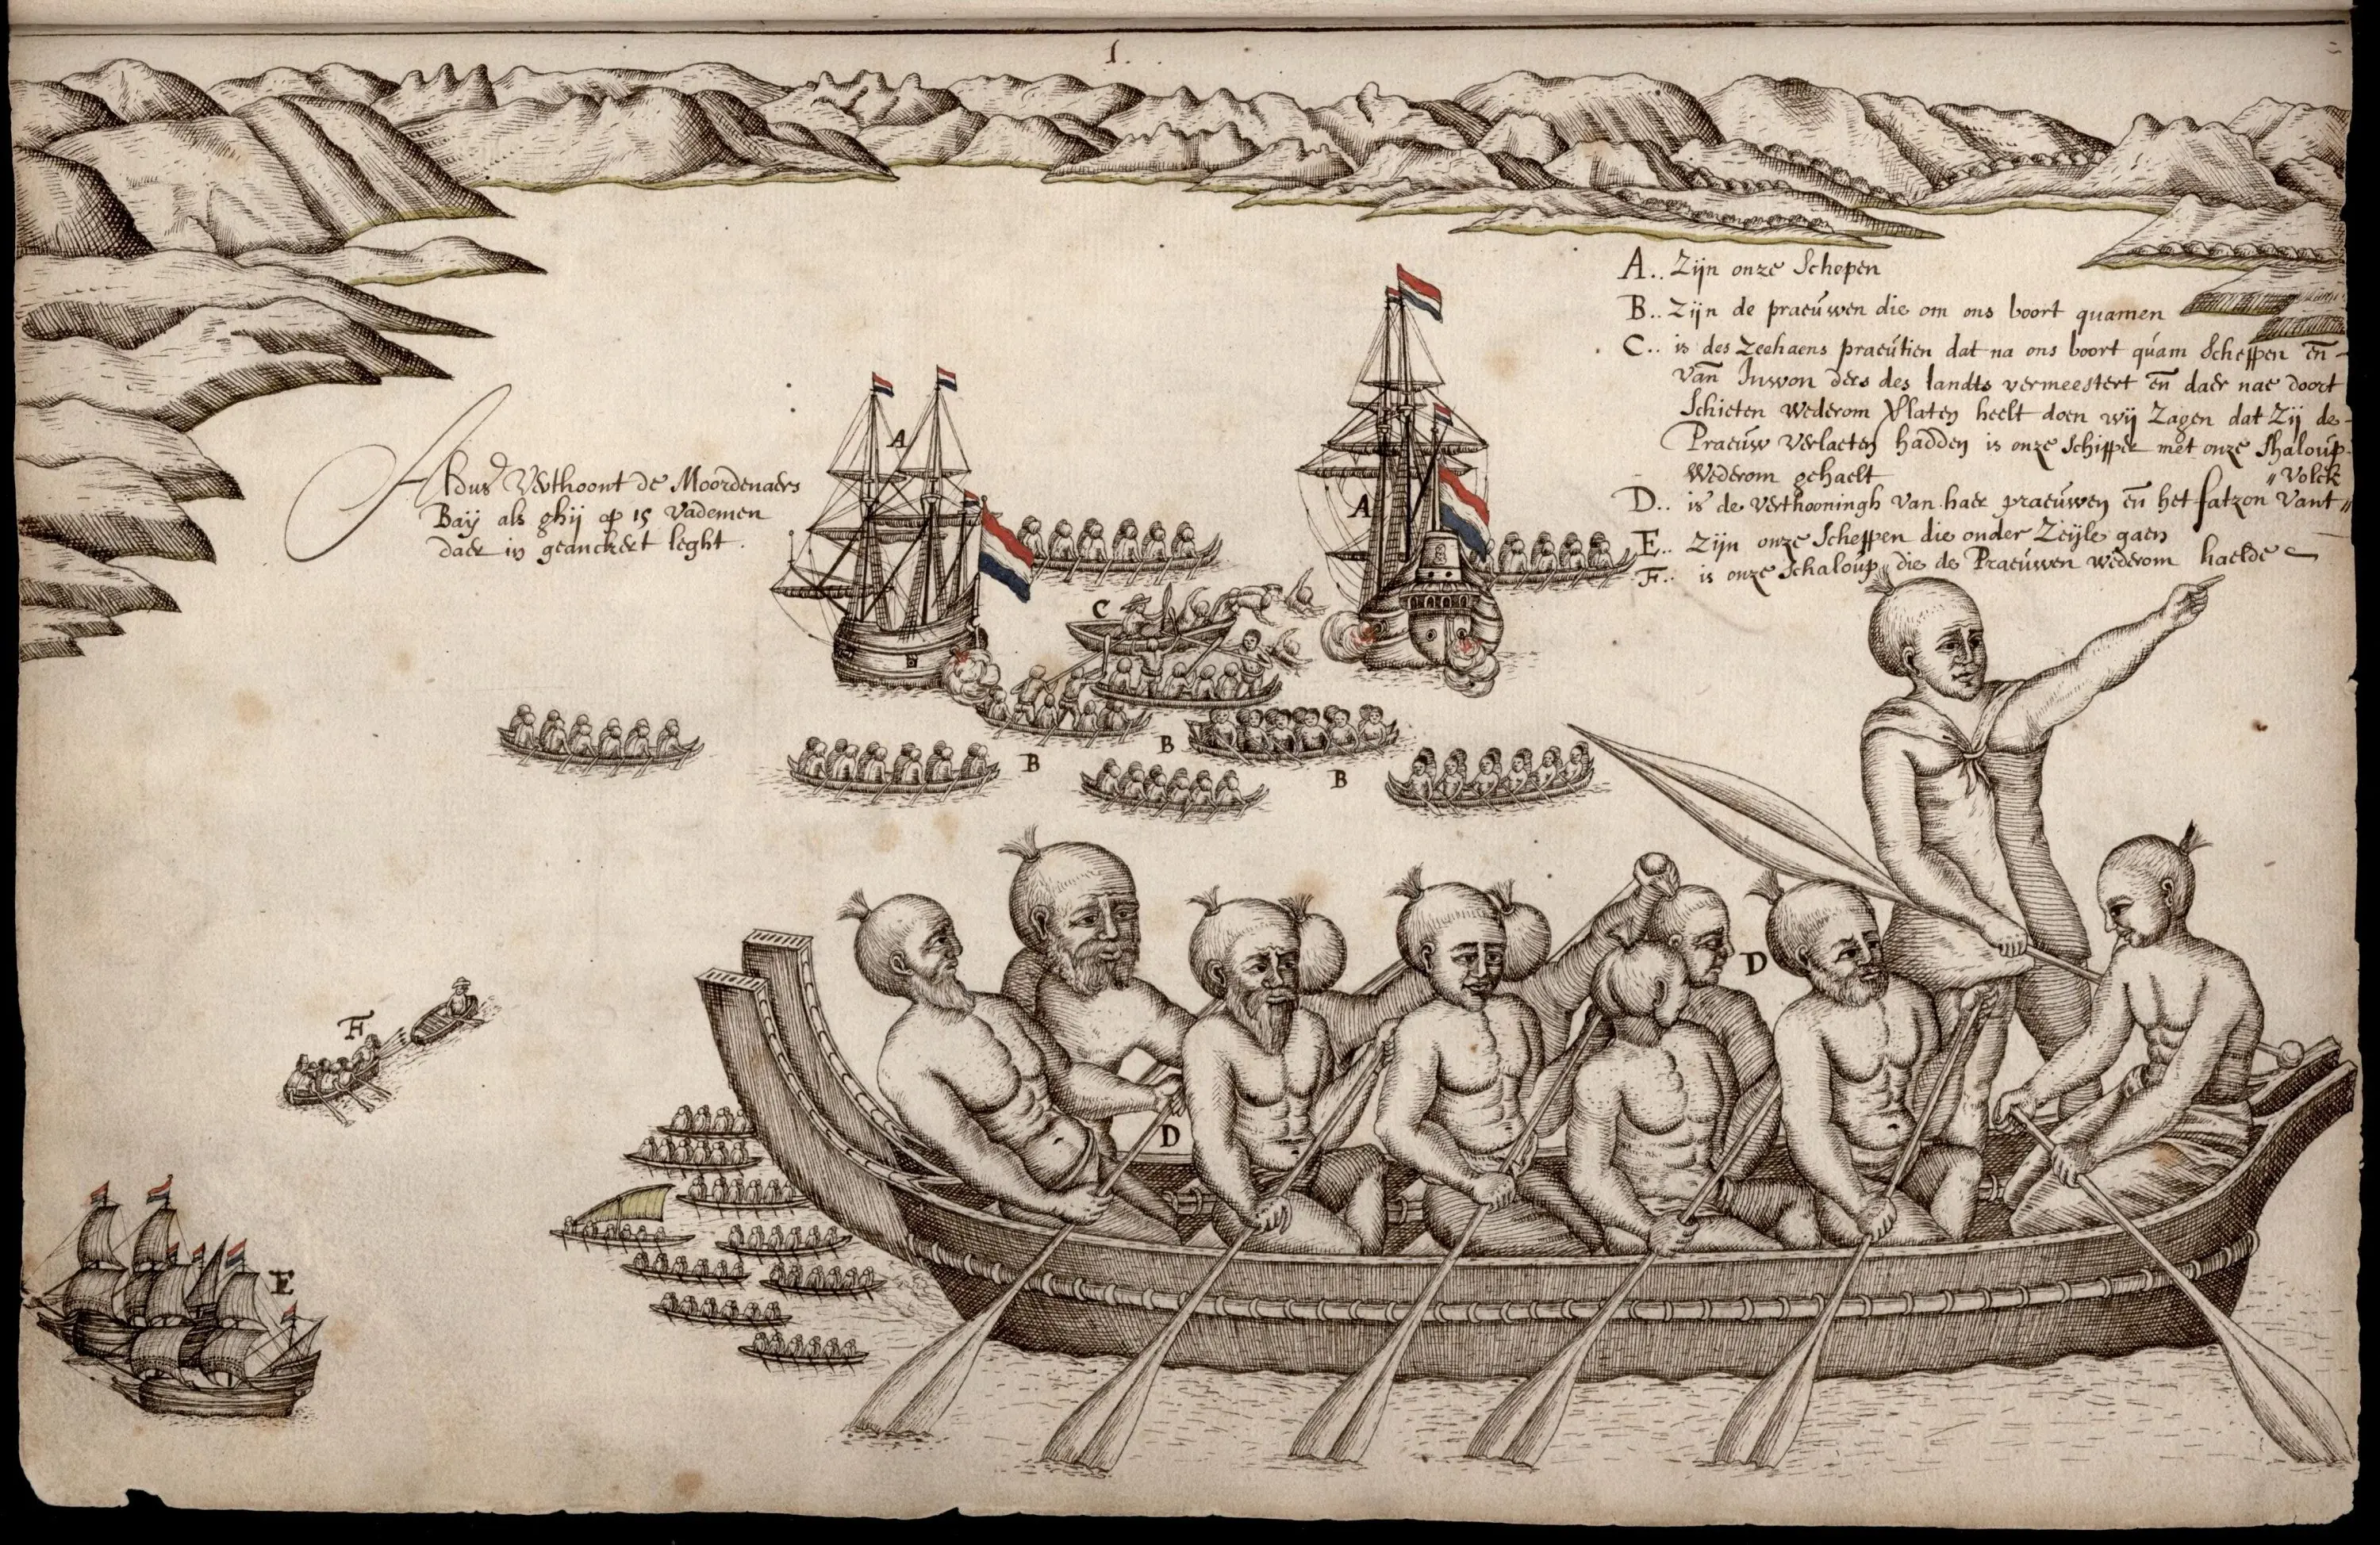 1.
A.. Zijn onze Schepen
B.. Zijn de praeuwen die om ons boort quamen
C.. is des Zeehaens praeutien dat na ons boort quam Scheppen en
van Inwon ders des landts vermeestert en daer nae doort
Schieten wederom Vlaten heelt doen wij Zagen dat Zij de
Praeuw verlaeten hadden is onze Schipper met onze Shaloup
Wederom gehaelt
D.. is de Verthooningh van haer praeuwen en het fatzon vant
"Volck
E.. Zijn onze Scheppen die onder Zeijle gaen
F.. is onze Schaloup die de Praeuwen wederom haelde
Aldus Verthoont de Moordenaers
Baij als ghij op 15 vademen
daer in geanckert leght.
A
A
C
B
B
B
D
D
F
E